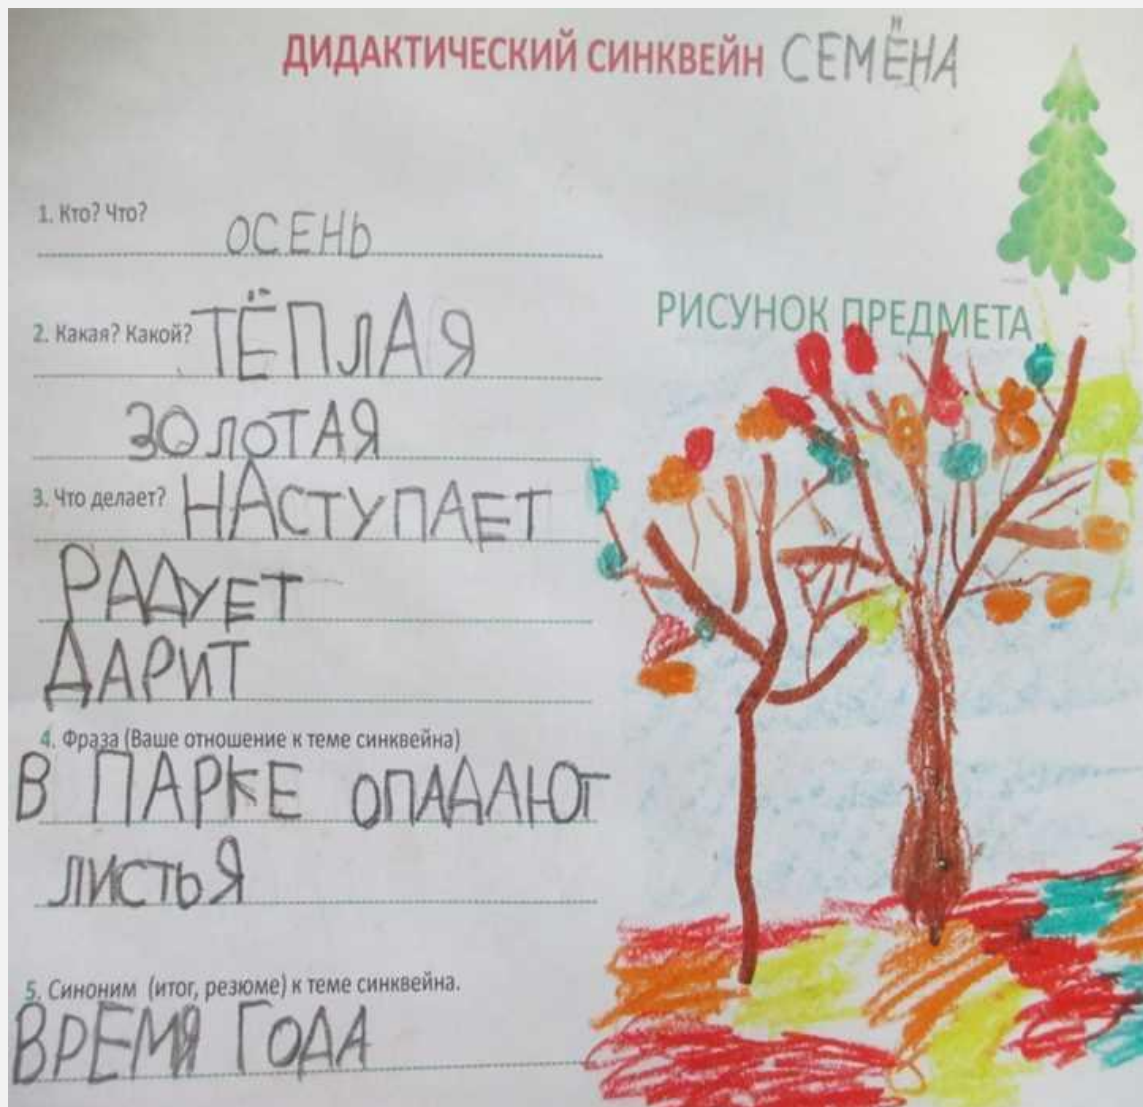 ДИДАКТИЧЕСКИЙ СИНКВЕЙН СЕМЁНА
1. Кто? Что?
ОСЕНЬ
2. Какая? Какой? ТЁПЛАЯ
ЗОЛОТАЯ
3. Что делает? НАСТУПАЕТ
РАДУЕТ
ДАРИТ
4. Фраза (Ваше отношение к теме синквейна)
В ПАРКЕ ОПАДАЮТ
ЛИСТЬЯ
5. Синоним (итог, резюме) к теме синквейна.
ВРЕМЯ ГОДА
РИСУНОК ПРЕДМЕТА